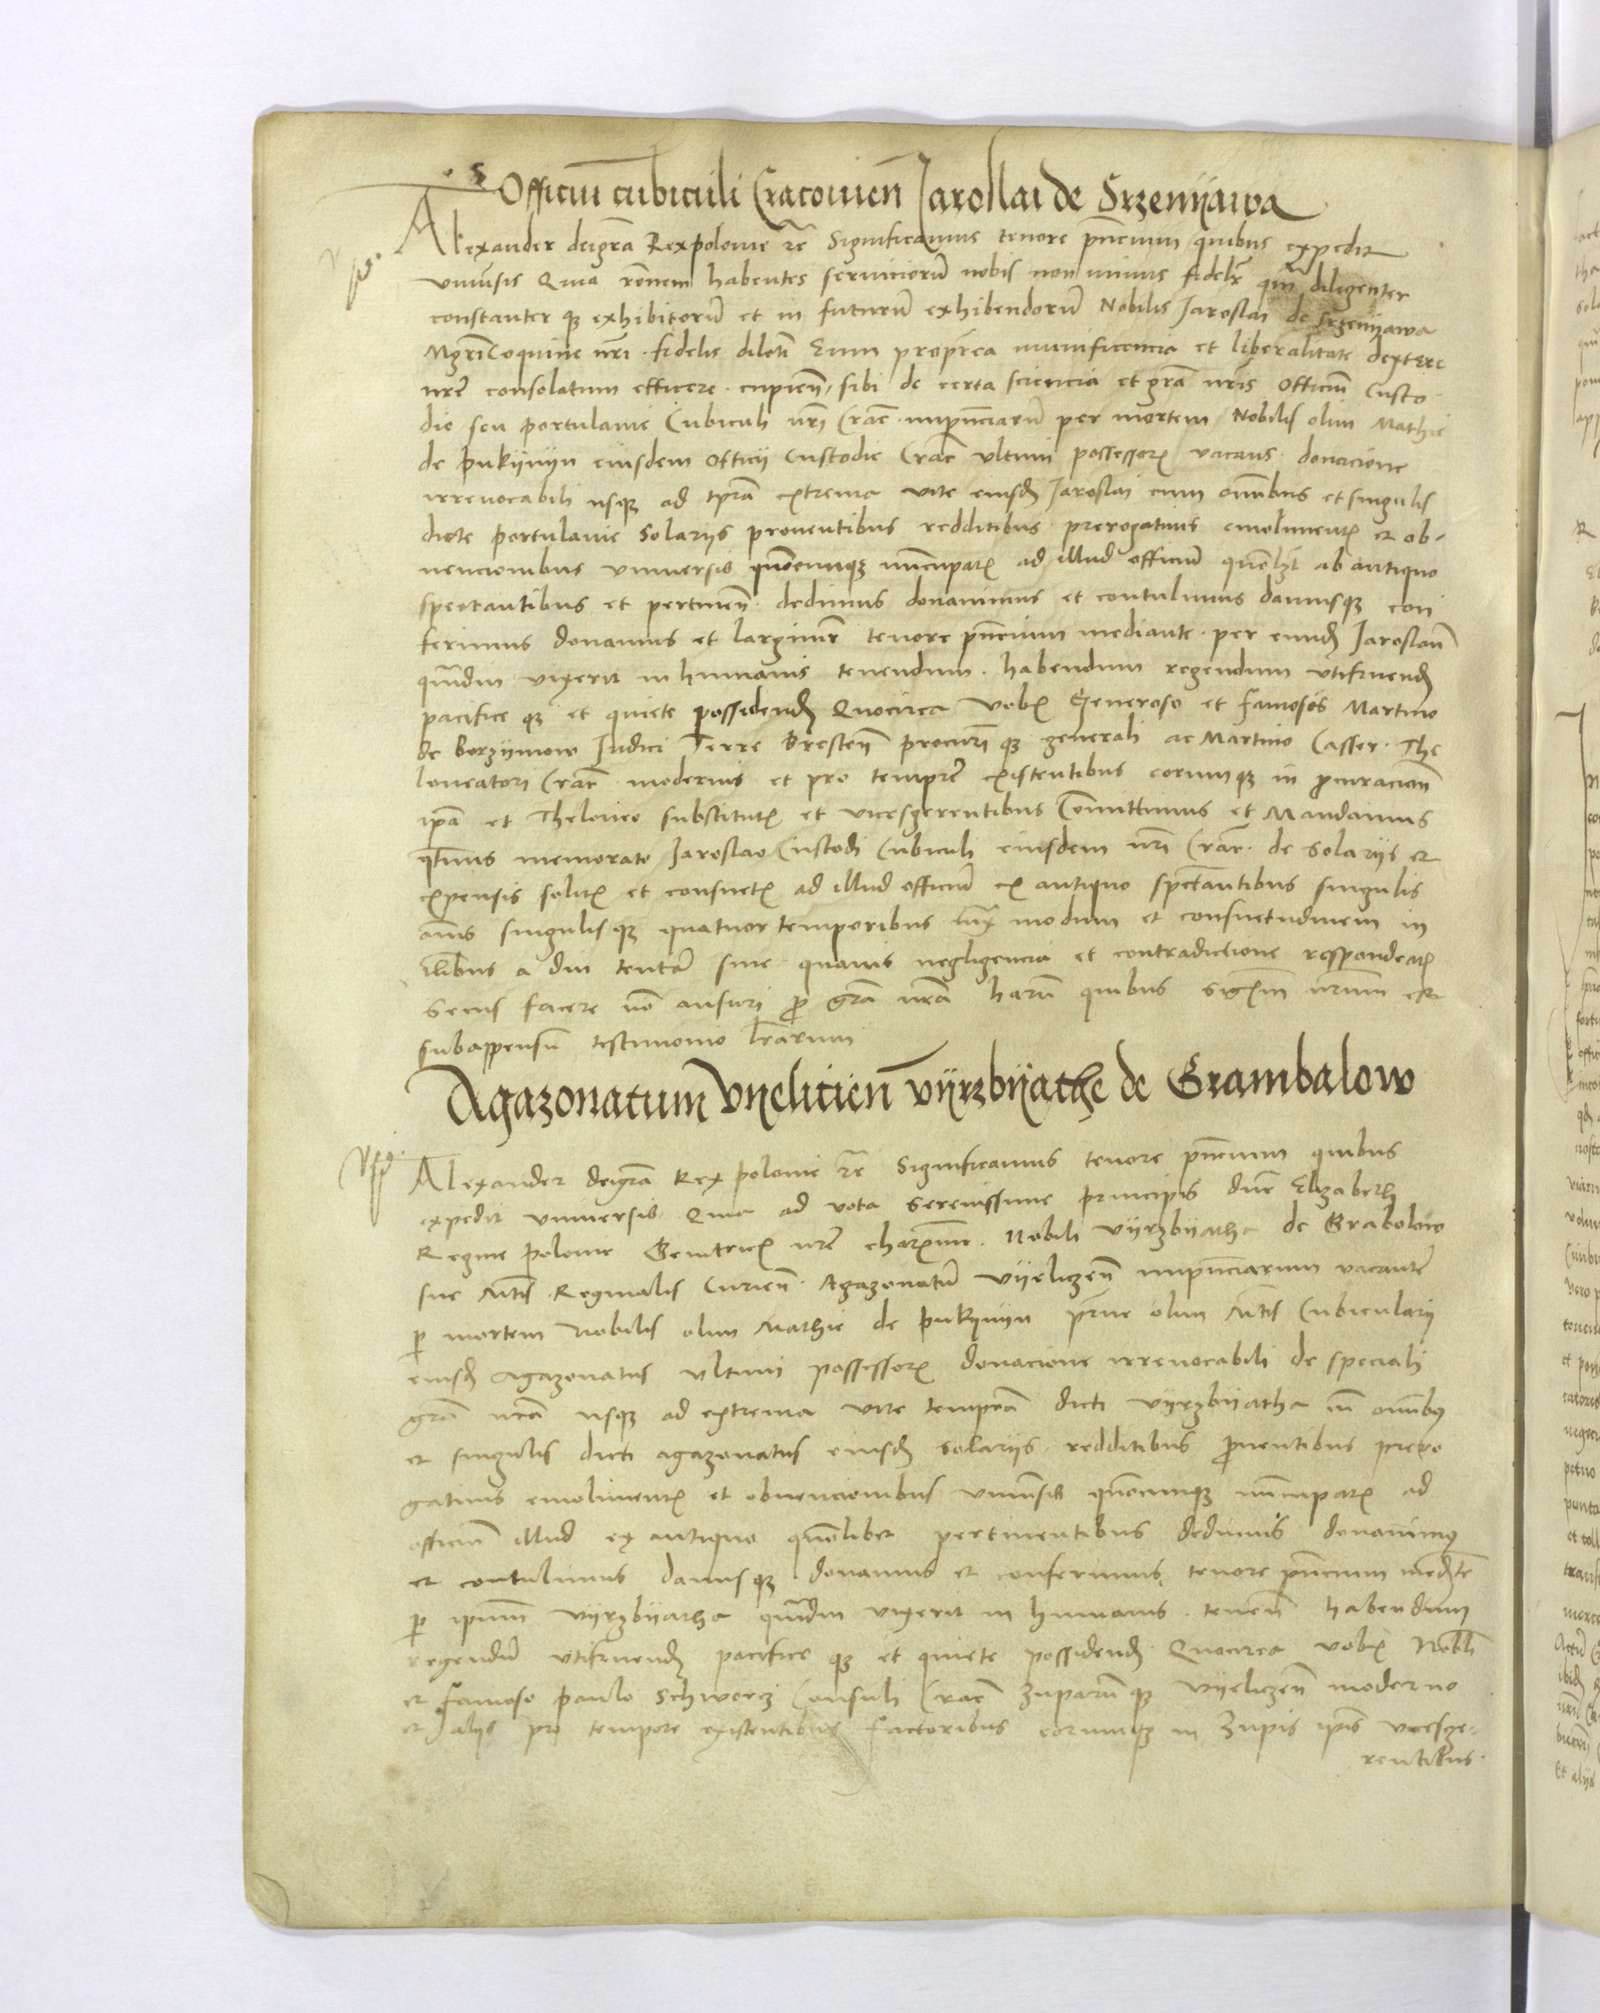 Officiu cubiculi Cracovien Jaroslai de Srzenijawa
Alexander dei gra Rex polonie etc Significamus tenore pntium quibus expedit
univsis Quia ronem habentes serviciorum nobis non minus fidelr qm diligenter
constanter que exhibitoru et in futurum exhibendoru Nobilis Jaroslai de Srzenijawa
Mgri Coquine nri fidelis dilcti Eum proprea munificencia et liberalitate dextere
nre consolatum efficere cupien sibi de certa sciencia et gra nris Officiu Custo
die seu portulanie Cubiculi nri Crac inpnciarum per mortem Nobilis olim Mathie
de pukijnijn eiusdem officij Custodie Crac ultimi possessor vacans donacione
irrevocabili usque ad tpra extrema vite eiusd Jaroslai cum omnibus et singulis
dicte portulanie Solarijs proventibus redditibus prerogativis emolument et ob-
vencionibus universis quocunque nuncupat ad illud officium quolzt ab antiquo
spectantibus et pertinen dedimus donavimus et contulimus damusque con
ferimus donamus et largimur tenore pntium mediante per eund Jaroslau
quadiu vixerit in humanis tenendum habendum regendum utifruend
pacifice que et quiete possidend Quocirca vobis Generoso et famosis Martino
de Borzijmow Judici Terre Bresten procuri que generali ac Martino Casser The
loneatori Crac modernis et pro tempre existentibus eorumque in procuracion
ipa et Theloneo substitut et vicesgerentibus Comittimus et Mandamus
qtenus memorato Jaroslao Custodi Cubiculi eiusdem nri Crac de Solarijs et
expensis solit et consuet ad illud officiu ex antiquo spectantibus singulis
annis singulisque quatuor temporibus iux modum et consuetudinem in
illibus a diu tentam sine quavis negligencia et contradictione respondeat
Secus facere no ansuri pro gra nra haru quibus sigm nrum est
Subappensu testimonio lrarum
Agazonatum Vyelicien Vijrzbijathe de Grambalow
Alexander dei gra Rex polonie etc Significamus tenore pntium quibus
expedit universis Quia ad vota Serenissime principis dne Elizabeth
Regine polonie Genitric nre charxme Nobili Vijrzbijatha de Grabolow
sue Mtis Reginalis Curien Agazonatu Vijeliczen inpnciarum vacante
per mortem Nobilis olim Mathie de pukijnijn prue olim Mtis Cubicularij
eiusd agazonatus ultimi possessor donacione irrevocabili de speciali
gra nra usque ad extrema vite tempra dicti Vijrzbijatha cu omnibus
et singulis dicti agazonatus eiusd Solarijs redditibus proventibus prero
gativis emoliment et obvencionibus univsis quocunque nuncupat ad
officiu illud ex antiquo quolibet pertinentibus dedimus donavimus
et contulimus damusque donamus et conferimus tenore pntium mediante
per ipsum Vijrzbijatha quadiu vixerit in humanis tenen habendum
regendu utifruend pacifice que et quiete possidend Quocirca vobis Nobli
et famoso paulo Schworcz Consuli Crac Zuparu que Vijeliczen moderno
et alijs pro tempore existentibus factoribus eorumque in Zupis ipis vicesge-
rentibus